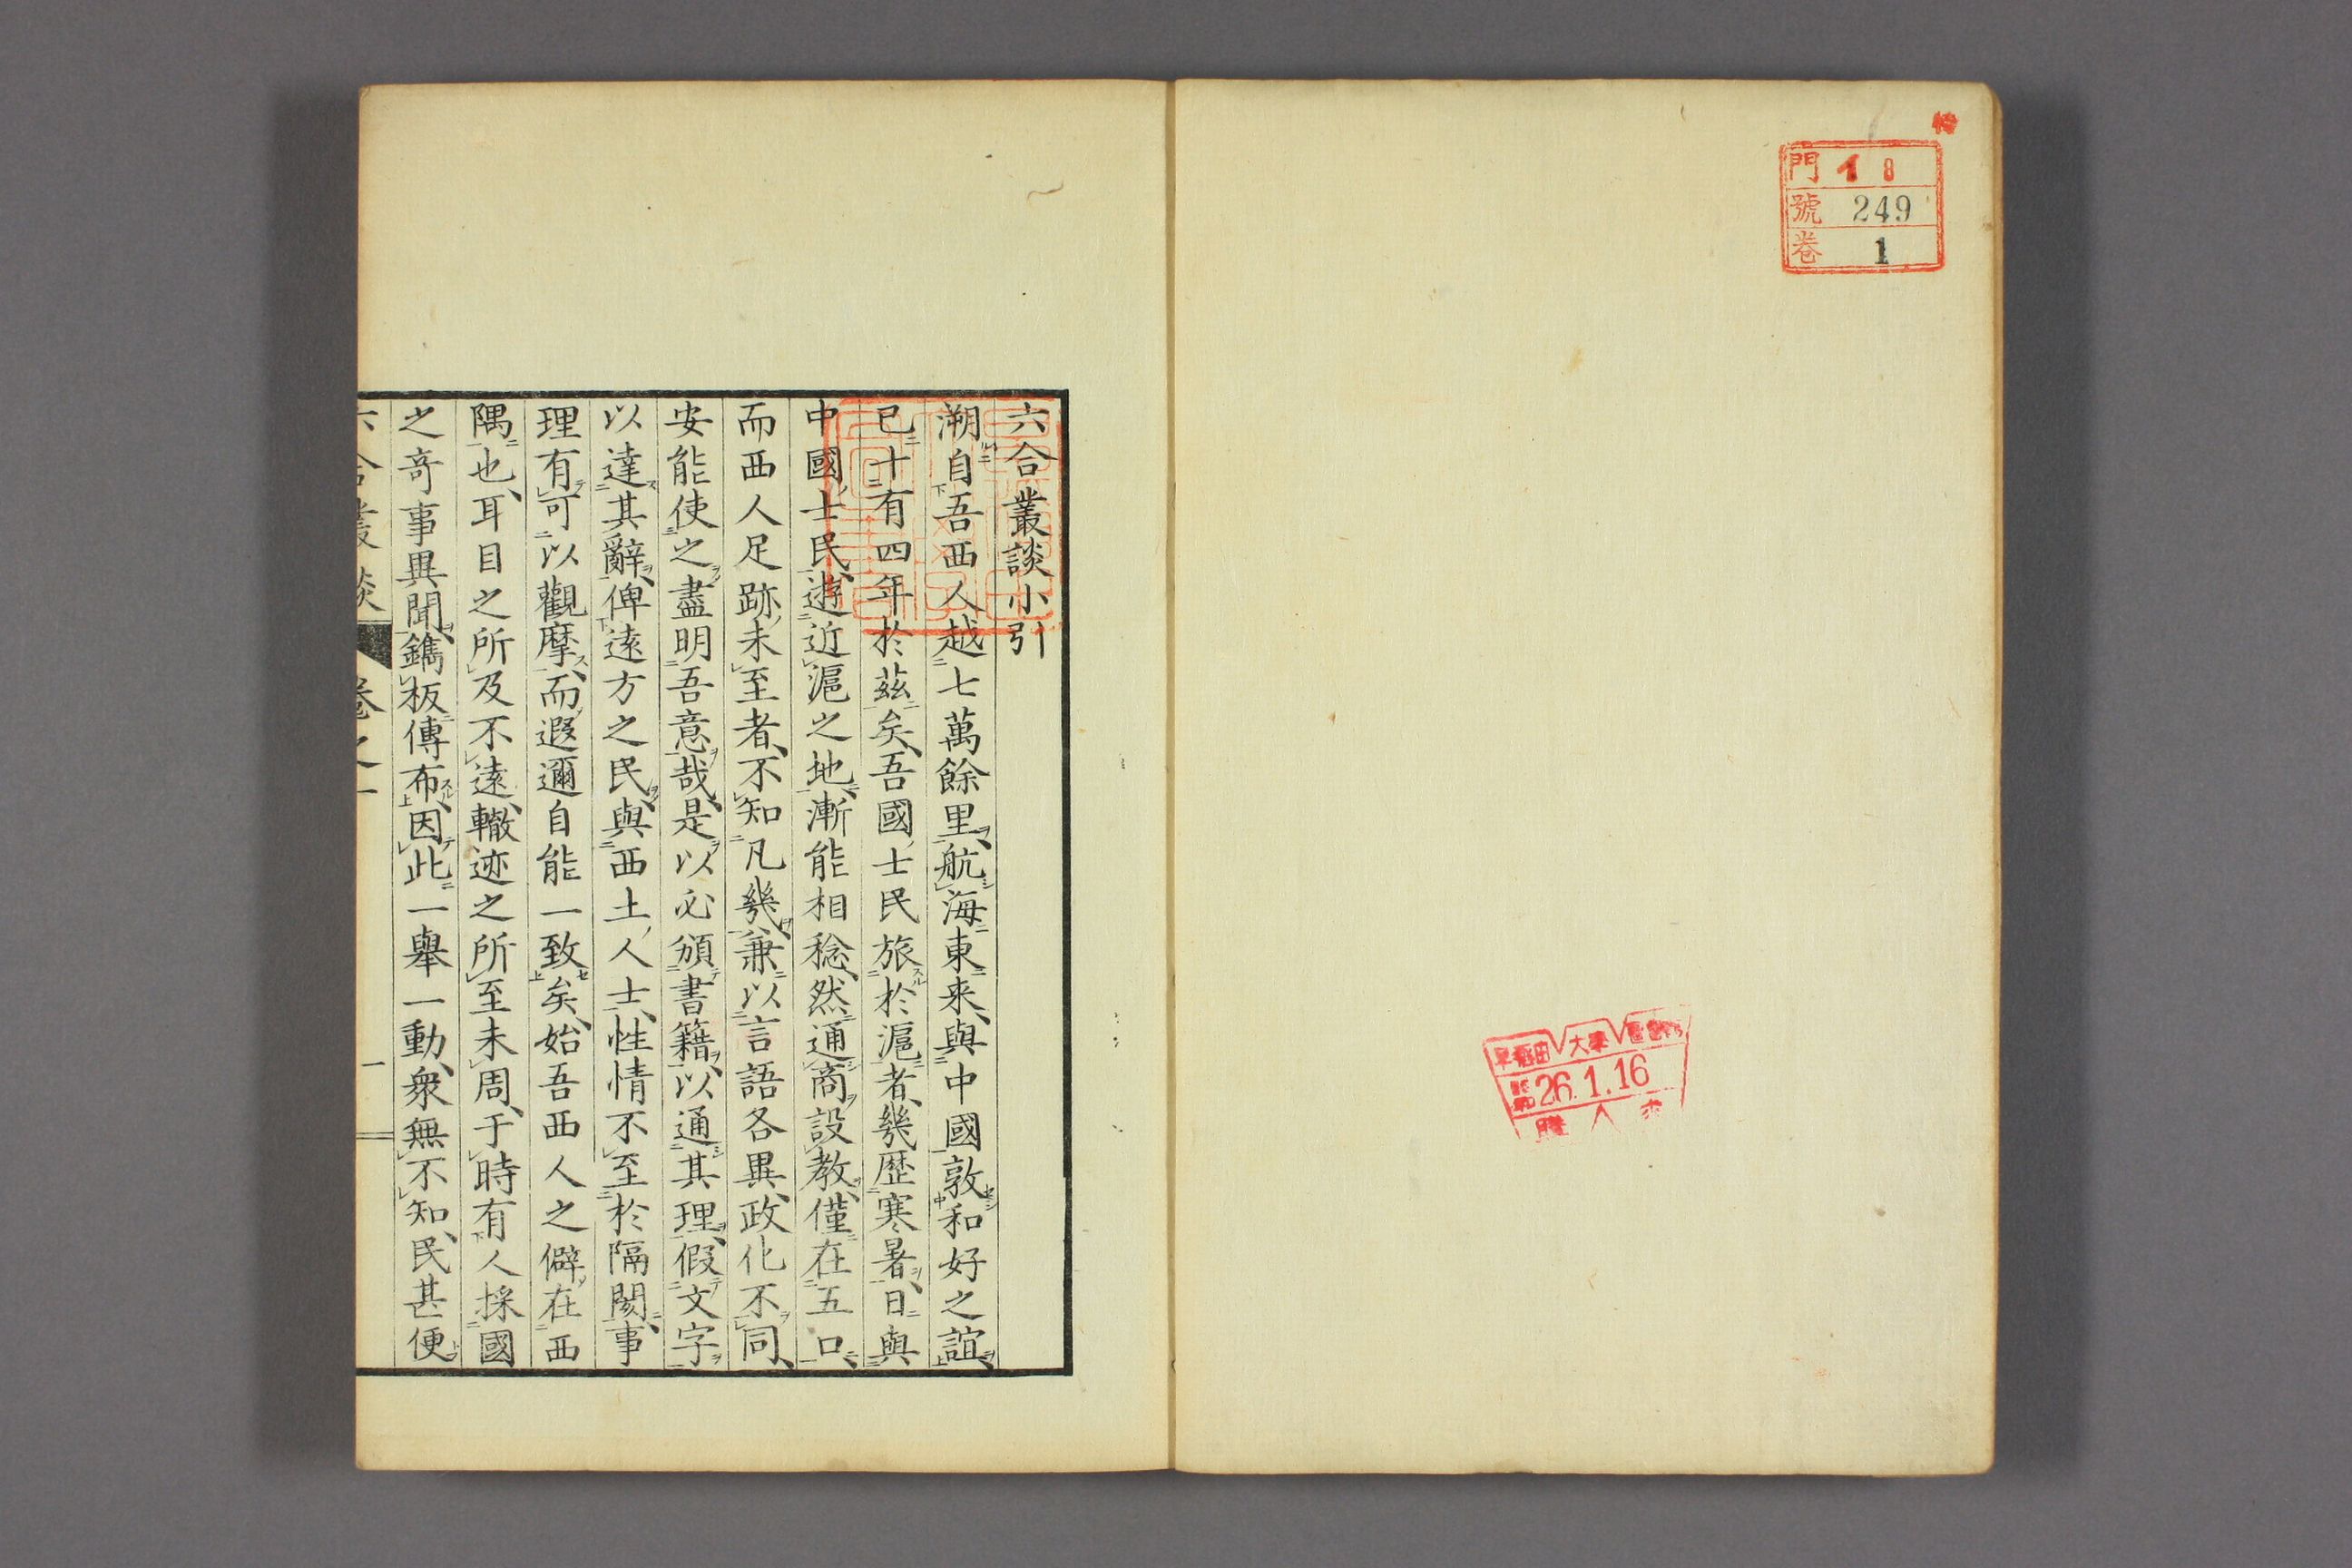 門 18
號 249
卷 1
早稲田大學
26.1.16
購入
六合叢談小引
溯自吾西人越七萬餘里、航海東來、與中國敦和好之誼、
已十有四年於茲矣、吾國士民旅於滬者、幾歷寒暑、日與
中國士民、遊近滬之地、漸能相稔、然通商設教、僅在五口、
而西人足跡未至者、不知凡幾、兼以言語各異、政化不同、
安能使之盡明吾意哉、是以必頒書籍、以通其理、假文字
以達其辭、俾遠方之民、與西土人士、性情不至於隔閡、事
理有可以觀摩、而遐邇自能一致矣、始吾西人之僻在西
隅也、耳目之所及不遠、轍迹之所至未周、于時有人採國
之奇事異聞、鐫板傳布、因此一舉一動、衆無不知、民甚便
六合叢談 卷之一 一